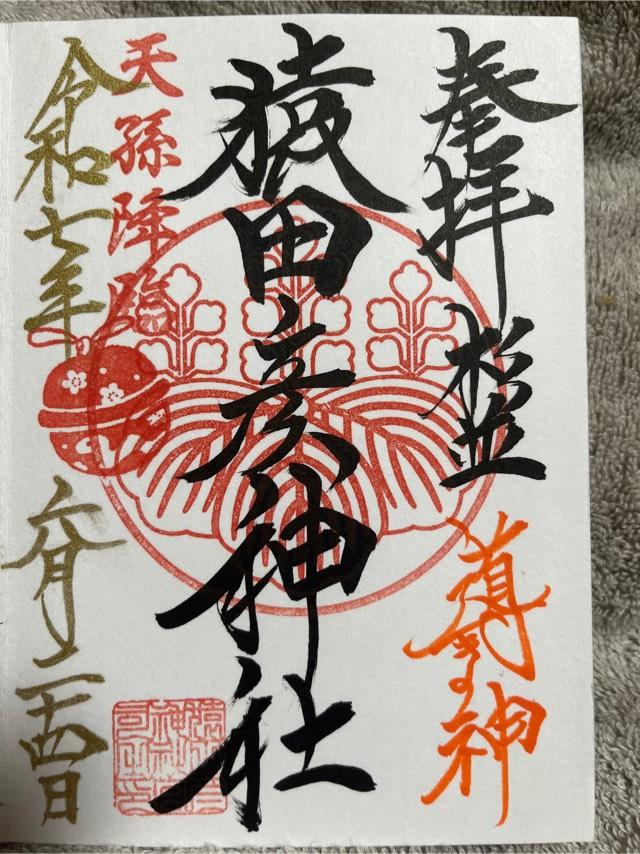 奉拝 松並
導きの神
猿田彦神社
天孫降臨
令和七年 六月二十四日